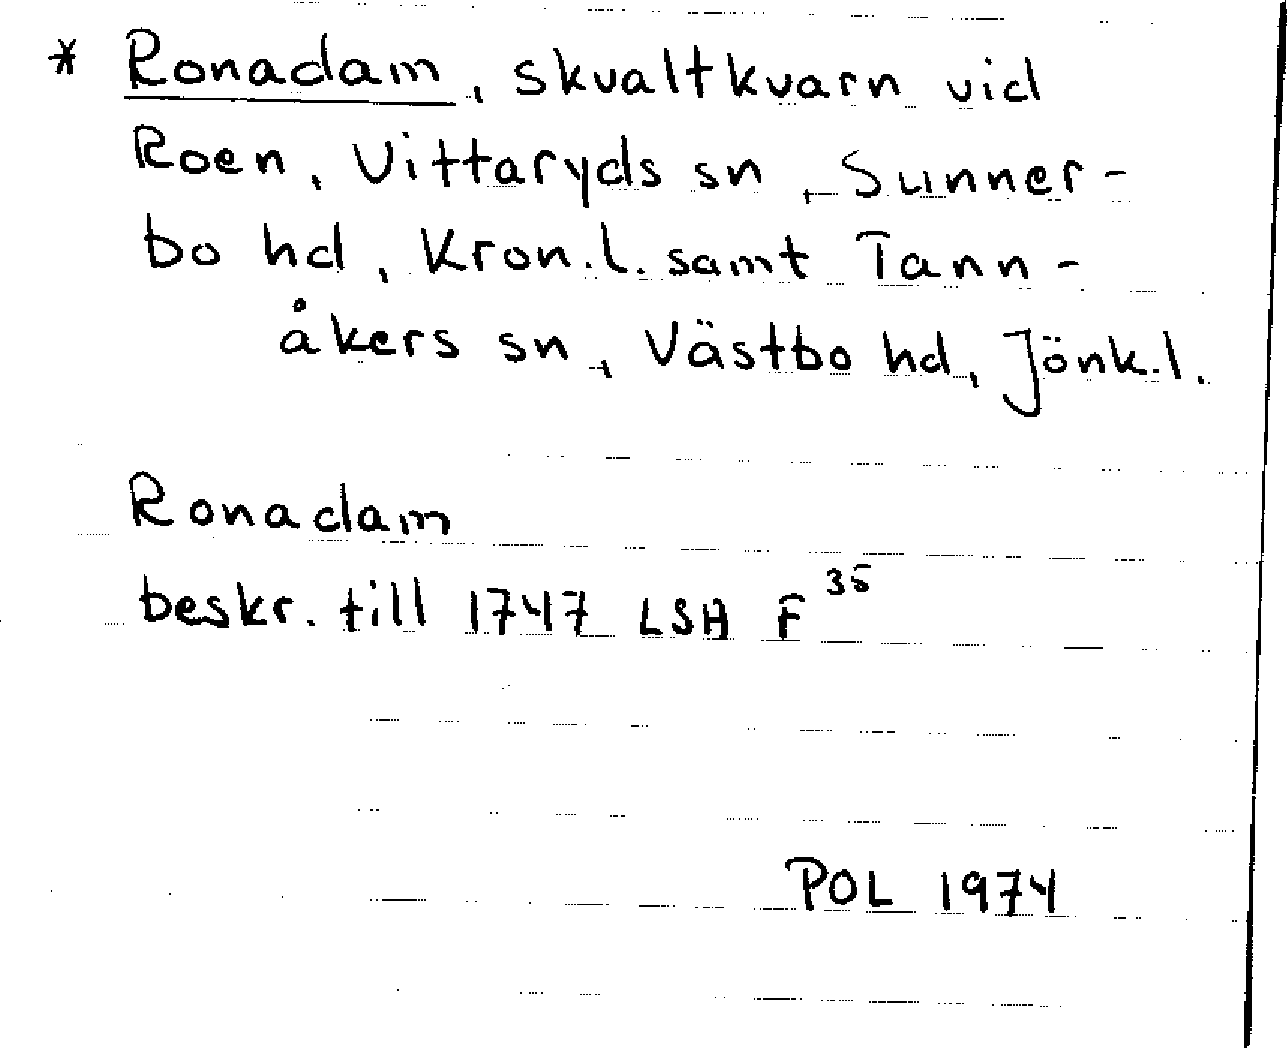 * Ronadam, skvaltkvarn vid
Roen, Vittaryds sn, Sunner-
bo hd, Kron.l. samt Tann-
åkers sn, Västbo hd, Jönk.l.
Ronadam
beskr. till 1747 LSA F 35
POL 1974